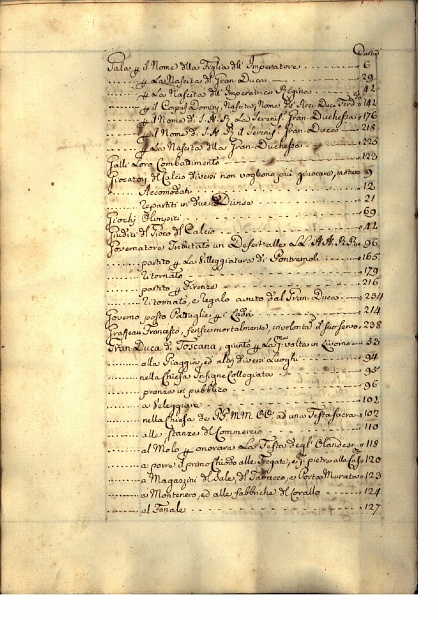 Gala p il Nome dlla Figlia dll' Imperatore 6
p La Nascita dl Gran Duca 29
p La Nascita dll' Imperatrice Regina 41
p il Corpus Domini, Nascita, Nome dl' Arci Duca 142
p il Nome di S.A.R. La Sereniss. Gran Duchessa 176
p il Nome di S.A.R. il Sereniss. Gran Duca 218
p La Nascita dlla Gran Duchessa 223
Galli Loro Combattimento 123
Giocatori dl Calcio diversi non vogliono più giuocare 9
Accomodati 12
repartiti in due Divise 21
Giochi Olimpici 69
Giudici dl Gioco dl Calcio 42
Governatore Inbitato un Desert alle LL.AA.RR. 96
partito p La Villeggiatura di Pontremoli 165
Ritornato 179
partito p Firenze 216
Ritornato, e regalo avuto dal Gran Duca 234
Governo posto Pattuglie p i Ladri 214
Grapeau Francesco, ferisce mortalmente, involontario il suo servo 238
Gran Duca di Toscana, giunto p La pma volta in Livorno 53
alla Piaggia, ed altri diversi Luoghi 94
nella Chiesa Insigne Collegiata 95
pranza in pubblico 96
a Veleggiare 102
nella Chiesa de RR. MM. CC. ad una Festa Sacra 102
alle Stanze dl Commercio 110
al Molo p onorare La Festa degl' Olandesi 118
a porre il primo Chiodo alle Fregate, e pietra alla 120
a Magazzini dl Sale, di Tabacco, e Porta Murata 123
a Montenero, ed alle fabbriche dl Corallo 124
al Fanale 127